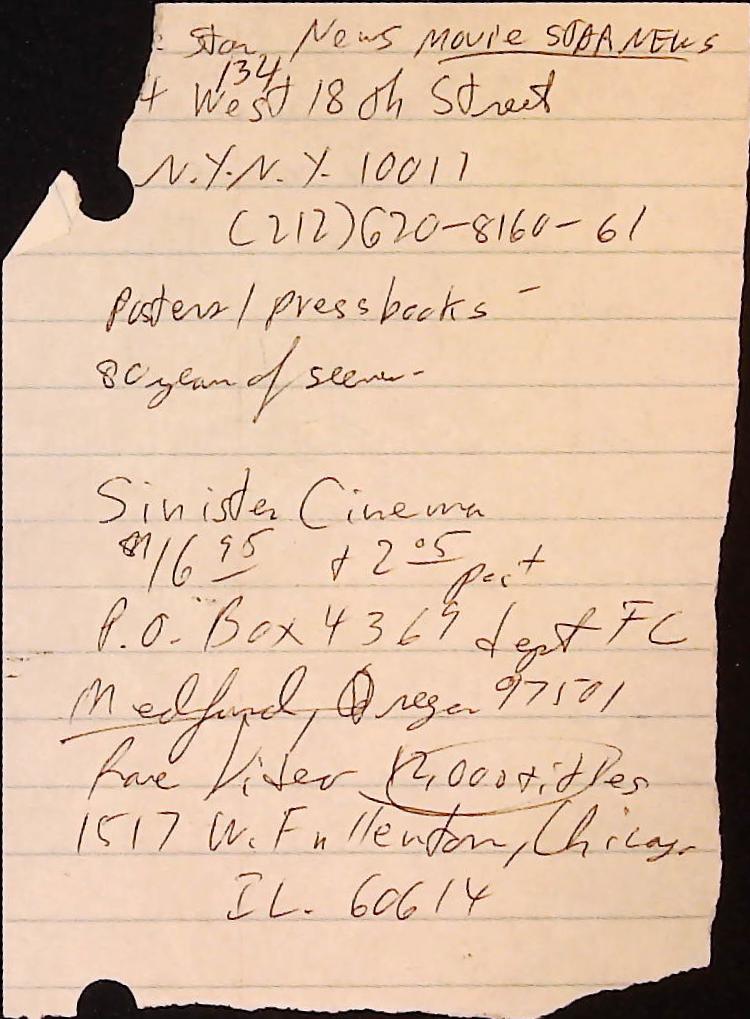 : Star News Movie STAR NEWS
134
+ West 18th Street
N.Y.N.Y. 10011
(212)620-8160-61
Posters/pressbooks -
80 years of scenes-
Sinister Cinema
$16 95 + 2 05 post
P.O. Box 4369 dept FC
Medford, Oregon 97501
Rare Video 12,000 titles
1517 W. Fullerton, Chicago
IL. 60614